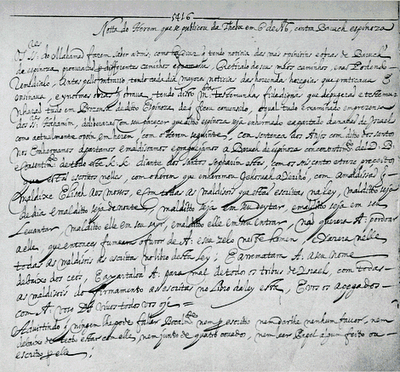 5416
Nota do Herem que se publicou da Theba em 6 de Ab, contra Baruch espinoza
Os SSres do Mahamad fazem saber a Vms como a diaz q tendo noticia das mas opinioins e obras de Baruch
de espinoza procurarão p differentes caminhos e promessas Retiralo de seus máos caminhos, e não Podendo
Remedialo, antes pello contrario tendo cada dia mayores noticias das horrendas heregias que practicava e
ensinava, e ynormes obras q obrava, tendo disto mtas testemunhas fidedignas que depugerão e testemu-
nharão tudo em Prezensa de ditto Espinoza, de q ficou convensido, o qual tudo examinado em prezensa
dos SSres Hahamim, deliberarão com seu parecer que ditto Espinoza seja enhermado e apartado da nação de Israel
como actualmente o poin em herem, com o herem seguinte. com sentensa dos Anjos com ditto dos santos
nos Enhermamos apartamos e maldisoamos e praguejamos a Baruch de espinoza com consentimto del D. B.
e consentimto de todo este K. K. diante dos santos sepharim estes, com os seis centos e treze preceitos
que estão escrittos nelles, com o herem que enhermou Jehosuah a Yeriho, com a maldisão q
maldixe Elisah aos mossos, e com todas as maldisois que estão escrittas na Ley, malditto seja
de dia e malditto seja de noute, malditto seja em seu deytar, e malditto seja em seu
Levantar, malditto elle em seu sayr, e malditto elle em seu Entrar, não quererá A. perdoar
a elle, que entonces fumeará o furor de A. e seu zelo neste homem, e yazerá nelle
todas as maldisois as escrittas no libro desta Ley, e arrematará A. a seu nome
debaixo dos ceos, E apartaloa A. para mal de todos os tribus de Israel, com todas
as maldisois do firmamento as escrittas no Libro da Ley esta, E vos os apegados
com A. vos D. vivos todos vos oje =
Advirtindo q ninguem lhe pode fallar bocalmte nem p escritto nem darlhe nenhum favor, nem
debaixo de tecto estar com elle, nem junto de quatro covados, nem leer Papel algum feito ou
escritto p elle;